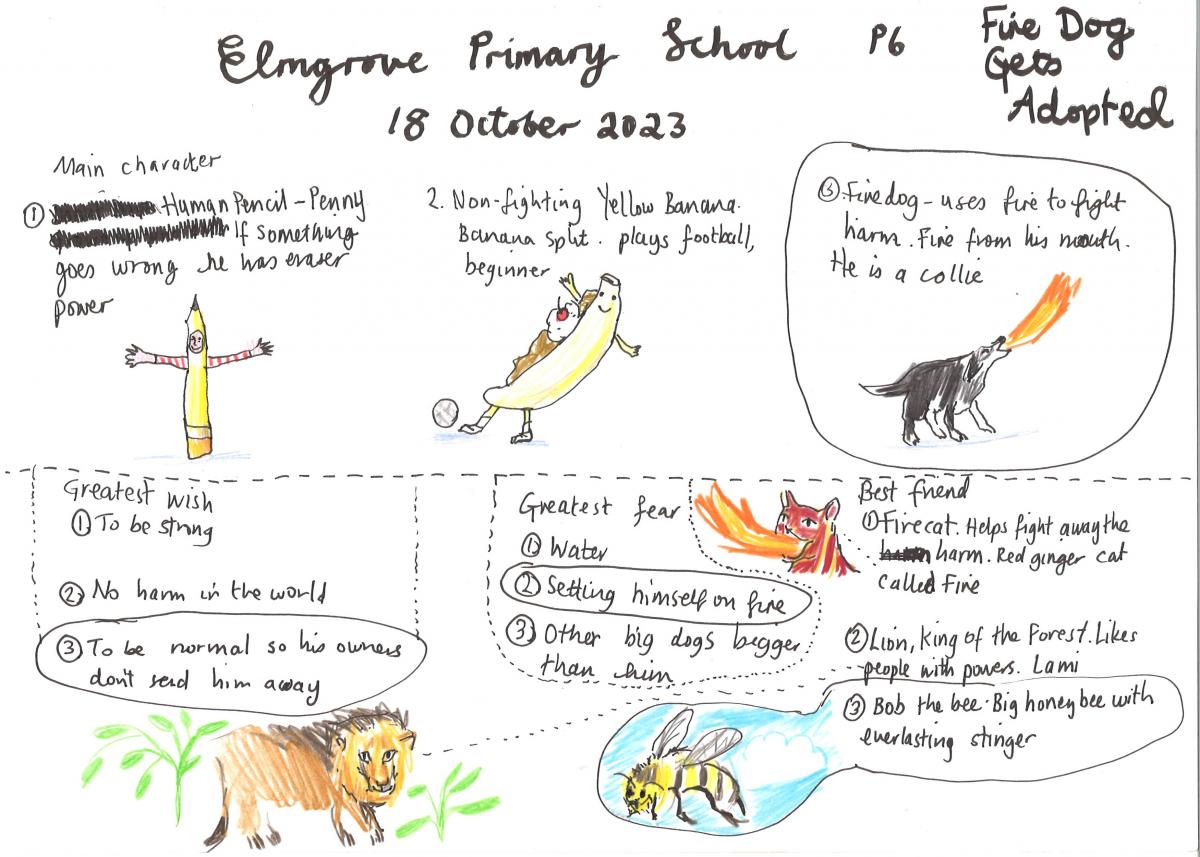 Elmgrove Primary School P6
Fire Dog
Gets
Adopted
18 October 2023
Main character
① Human Pencil - Penny
If something
goes wrong he has eraser
power
2. Non-fighting Yellow Banana.
Banana Split. plays football,
beginner
③ Firedog - uses fire to fight
harm. Fire from his mouth.
He is a collie
Greatest wish
① To be strong
② No harm in the world
③ To be normal so his owners
don't send him away
Greatest fear
① Water
② Setting himself on fire
③ Other big dogs bigger
than him
Best friend
① Firecat. Helps fight away the
harm. Red ginger cat
called Fire
② Lion, King of the Forest. Likes
people with powers. Lami
③ Bob the bee. Big honey bee with
everlasting stinger